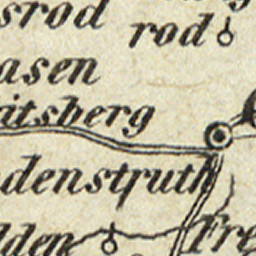 srod
rod
asen
itsberg
denstruth
lden
Fre